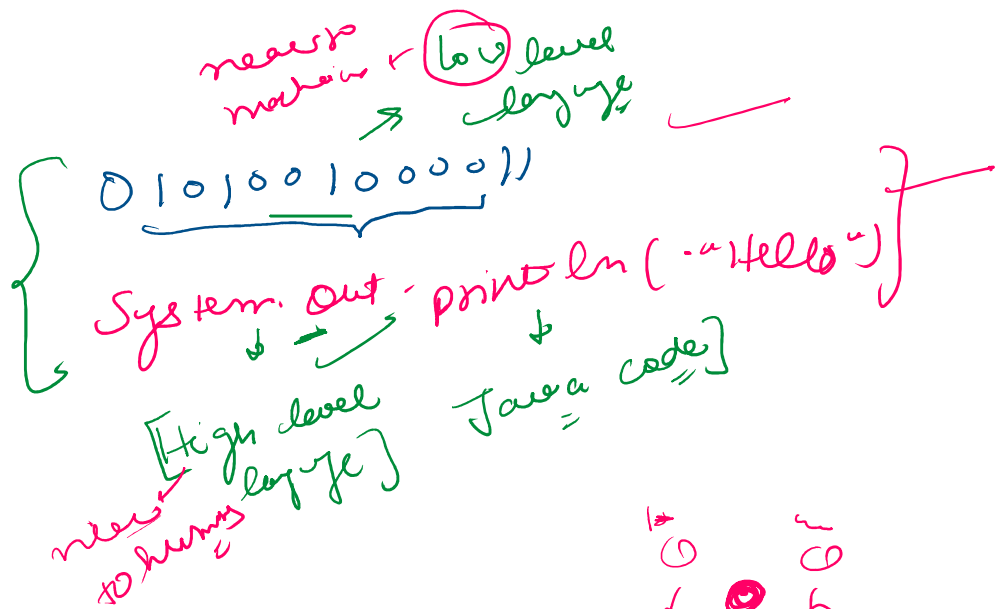 near to
machine
low level
language
0101001000011
System.out.println("Hello")
High level
language
Java code
near
to humans